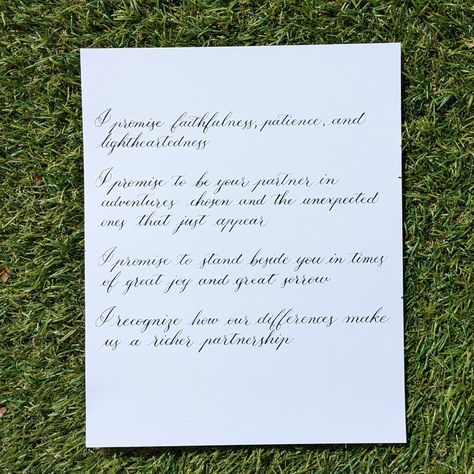 I promise faithfulness, patience, and
lightheartedness
I promise to be your partner in
adventures chosen and the unexpected
ones that just appear
I promise to stand beside you in times
of great joy and great sorrow
I recognize how our differences make
us a richer partnership